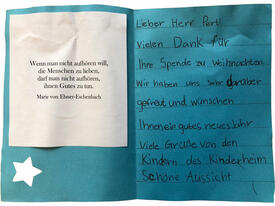 Wenn man nicht aufhören will,
die Menschen zu lieben,
darf man nicht aufhören,
ihnen Gutes zu tun.
Marie von Ebner-Eschenbach
Lieber Herr Portl
Vielen Dank für
Ihre Spende zu Weihnachten
Wir haben uns sehr darüber
gefreut und wünschen
Ihnen ein gutes neues Jahr
Viele Grüße von den
Kindern des Kinderheim
Schöne Aussicht